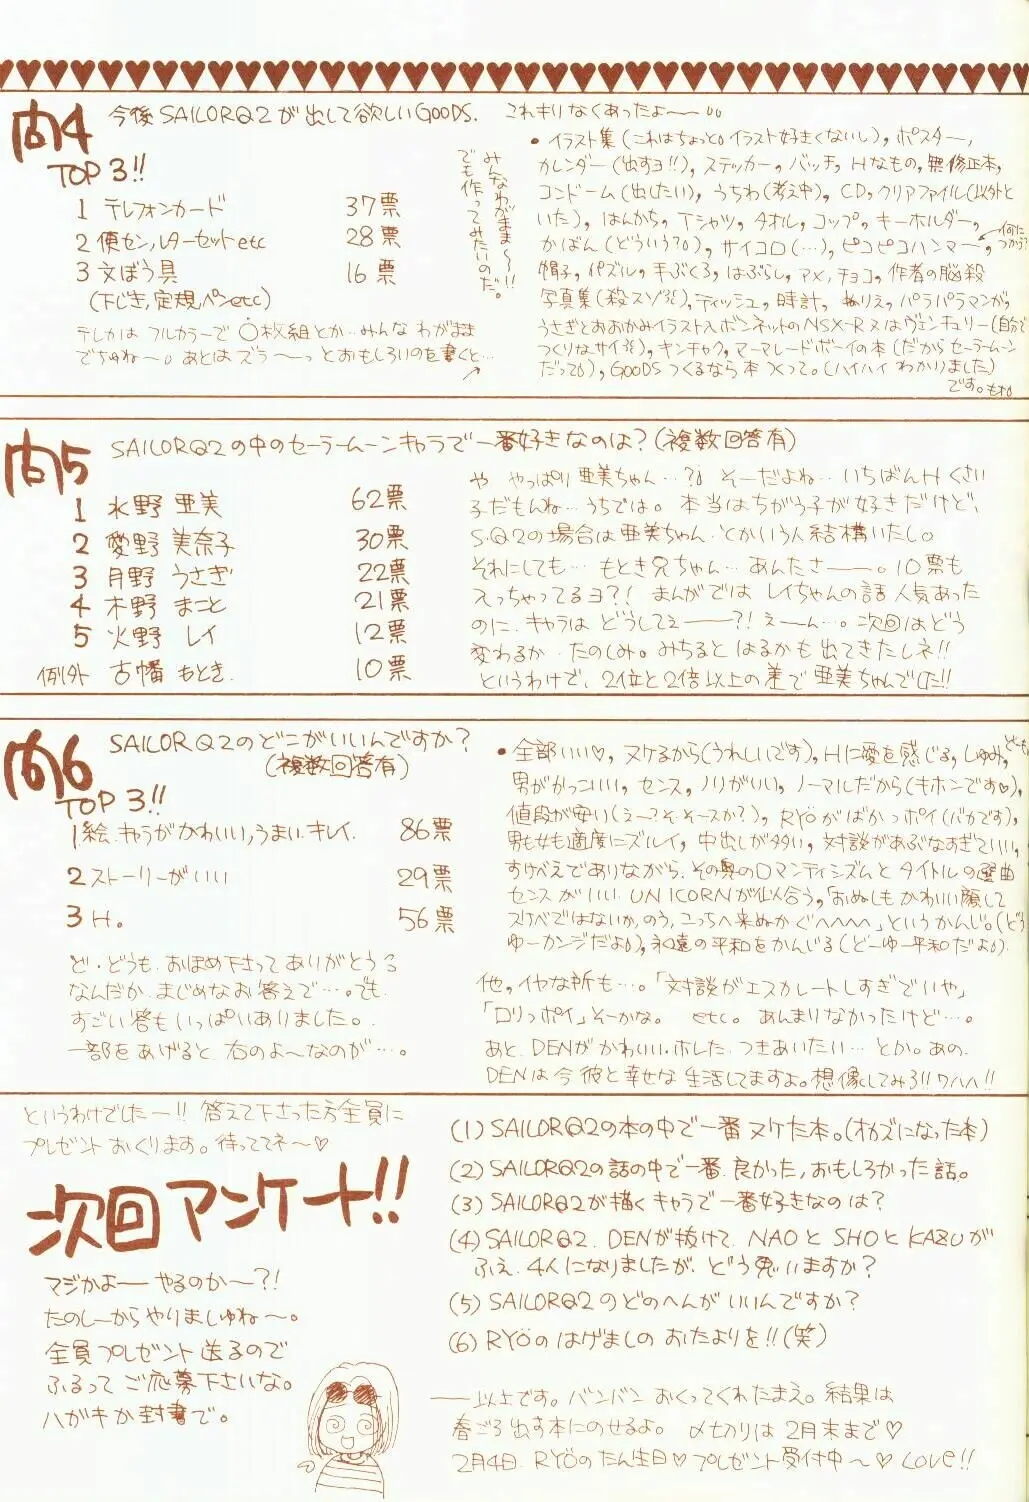 問4 今後SAILORQ2が出して欲しいGOODS.
TOP 3!!
1 テレフォンカード 37票
2 便セン,レターセットetc 28票
3 文ぼう具 16票
(下じき,定規,ペンetc)
みんなわがまま〜〜!!
でも作ってみたいのだ。
テレカは フルカラーで ○枚組とか…みんな わがまま
でちゅね〜。あとは ズラ〜〜っと おもしろいのを 書くと…
これキリなくあったよ〜〜
• イラスト集(これはちょっと。イラスト好きくないし), ポスター,
カレンダー(出すヨ!!), ステッカー, バッヂ, Hなもの, 無修正本,
コンドーム(出したい), うちわ(考え中), CD, クリアファイル(以外と
いた), はんかち, Tシャツ, タオル, コップ, キーホルダー,
かばん(どういう?), サイコロ(…), ピコピコハンマー, ←何に つかう?
帽子, パズル, 手ぶくろ, はぶらし, アメ, チョコ, 作者の脳殺
写真集(殺スゾ), ティッシュ, 時計, ぬりえ, パラパラマンガ,
うさぎとおおかみイラスト入ボンネットのNSX-R又はヴェンチュリー(自分で
つくりなサイ), キンチャク, マーマレードボーイの本(だからセーラームーン
だって), GOODSつくるなら本つくって。(ハイハイ わかりました)
です。
問5 SAILORQ2の中のセーラームーンキャラで一番好きなのは?(複数回答有)
1 水野 亜美 62票
2 愛野 美奈子 30票
3 月野 うさぎ 22票
4 木野 まこと 21票
5 火野 レイ 12票
例外 古幡 もとき. 10票
や やっぱり 亜美ちゃん…?! そーだよね… いちばん H くさい
子だもんね… うちでは。本当はちがう子が好きだけど、
S.Q2の場合は亜美ちゃん、とかいう人 結構いたし。
それにしても… もとき兄ちゃん… あんたさ———。10票も
入っちゃってるヨ?! まんがでは レイちゃんの話 人気あった
のに、キャラは どうしてぇ———?! えーん…。次回はどう
変わるか、たのしみ。みちると はるかも 出てきたしネ!!
というわけで、2位と2倍以上の差で 亜美ちゃんでした!!
問6 SAILORQ2のどこがいいんですか?
(複数回答有)
TOP 3!!
1.絵、キャラがかわいい,うまい,キレイ. 86票
2 ストーリーがいい 29票
3 H。 56票
ど・どうも、おほめ下さって ありがとう
なんだか、まじめなお答えで…。でも、
すごい答も いっぱいありました。
一部を あげると、右のよ〜なのが…。
• 全部いい♡, ヌケるから(うれしいです), Hに愛を感じる, しゅみ,
男がかっこいい, センス, ノリがいい, ノーマルだから(キホンです♡),
値段が安い(えー?そ、そースか?), RYÖがばかっポイ(バカです),
男も女も適度にズルイ, 中出しが多い, 対談があぶなすぎていい,
すけべえでありながら、その奥のロマンティシズムと タイトルの選曲
センスがいい, UNICORNが似合う,「おぬしも かわいい顔して
スケベではないか、のう、こっちへ来ぬか ぐへへへへ」というかんじ。(どう
ゆーカンジだよ), 永遠の平和を かんじる(どーゆー平和だよ)
他, イヤな所も…。「対談がエスカレートしすぎでいや」
「ロリっポイ」そーかな。 etc。あんまりなかったけど…。
あと、DENが かわいい・ホレた、つきあいたい… とか。あの、
DENは今 彼と幸せな 生活してますよ。想像してみろ!! ワハハ!!
というわけでした〜!! 答えて下さった方全員に
プレゼント おくります。待っててネ〜♡
次回アンケート!!
マジかよ—— やるのか〜?!
たのしーから やりましゅね〜。
全員プレゼント 送るので
ふるって ご応募下さいな。
ハガキか 封書で。
(1) SAILORQ2の本の中で一番 ヌケた本。(オカズになった本)
(2) SAILORQ2の話の中で一番、良かった,おもしろかった 話。
(3) SAILORQ2が描く キャラで 一番好きなのは?
(4) SAILORQ2. DENが 抜けて、NAOと SHOと KAZUが
ふえ、4人になりましたが、どう 思いますか?
(5) SAILORQ2 のどのへんが いいんですか?
(6) RYÖの はげましの おたよりを!!(笑)
——以上です。バンバン おくってくれたまえ。結果は
春ごろ出す本にのせるよ。〆切りは 2月末まで♡
2月4日、RYÖの たん生日♡ プレゼント受付中〜♡ LOVE!!